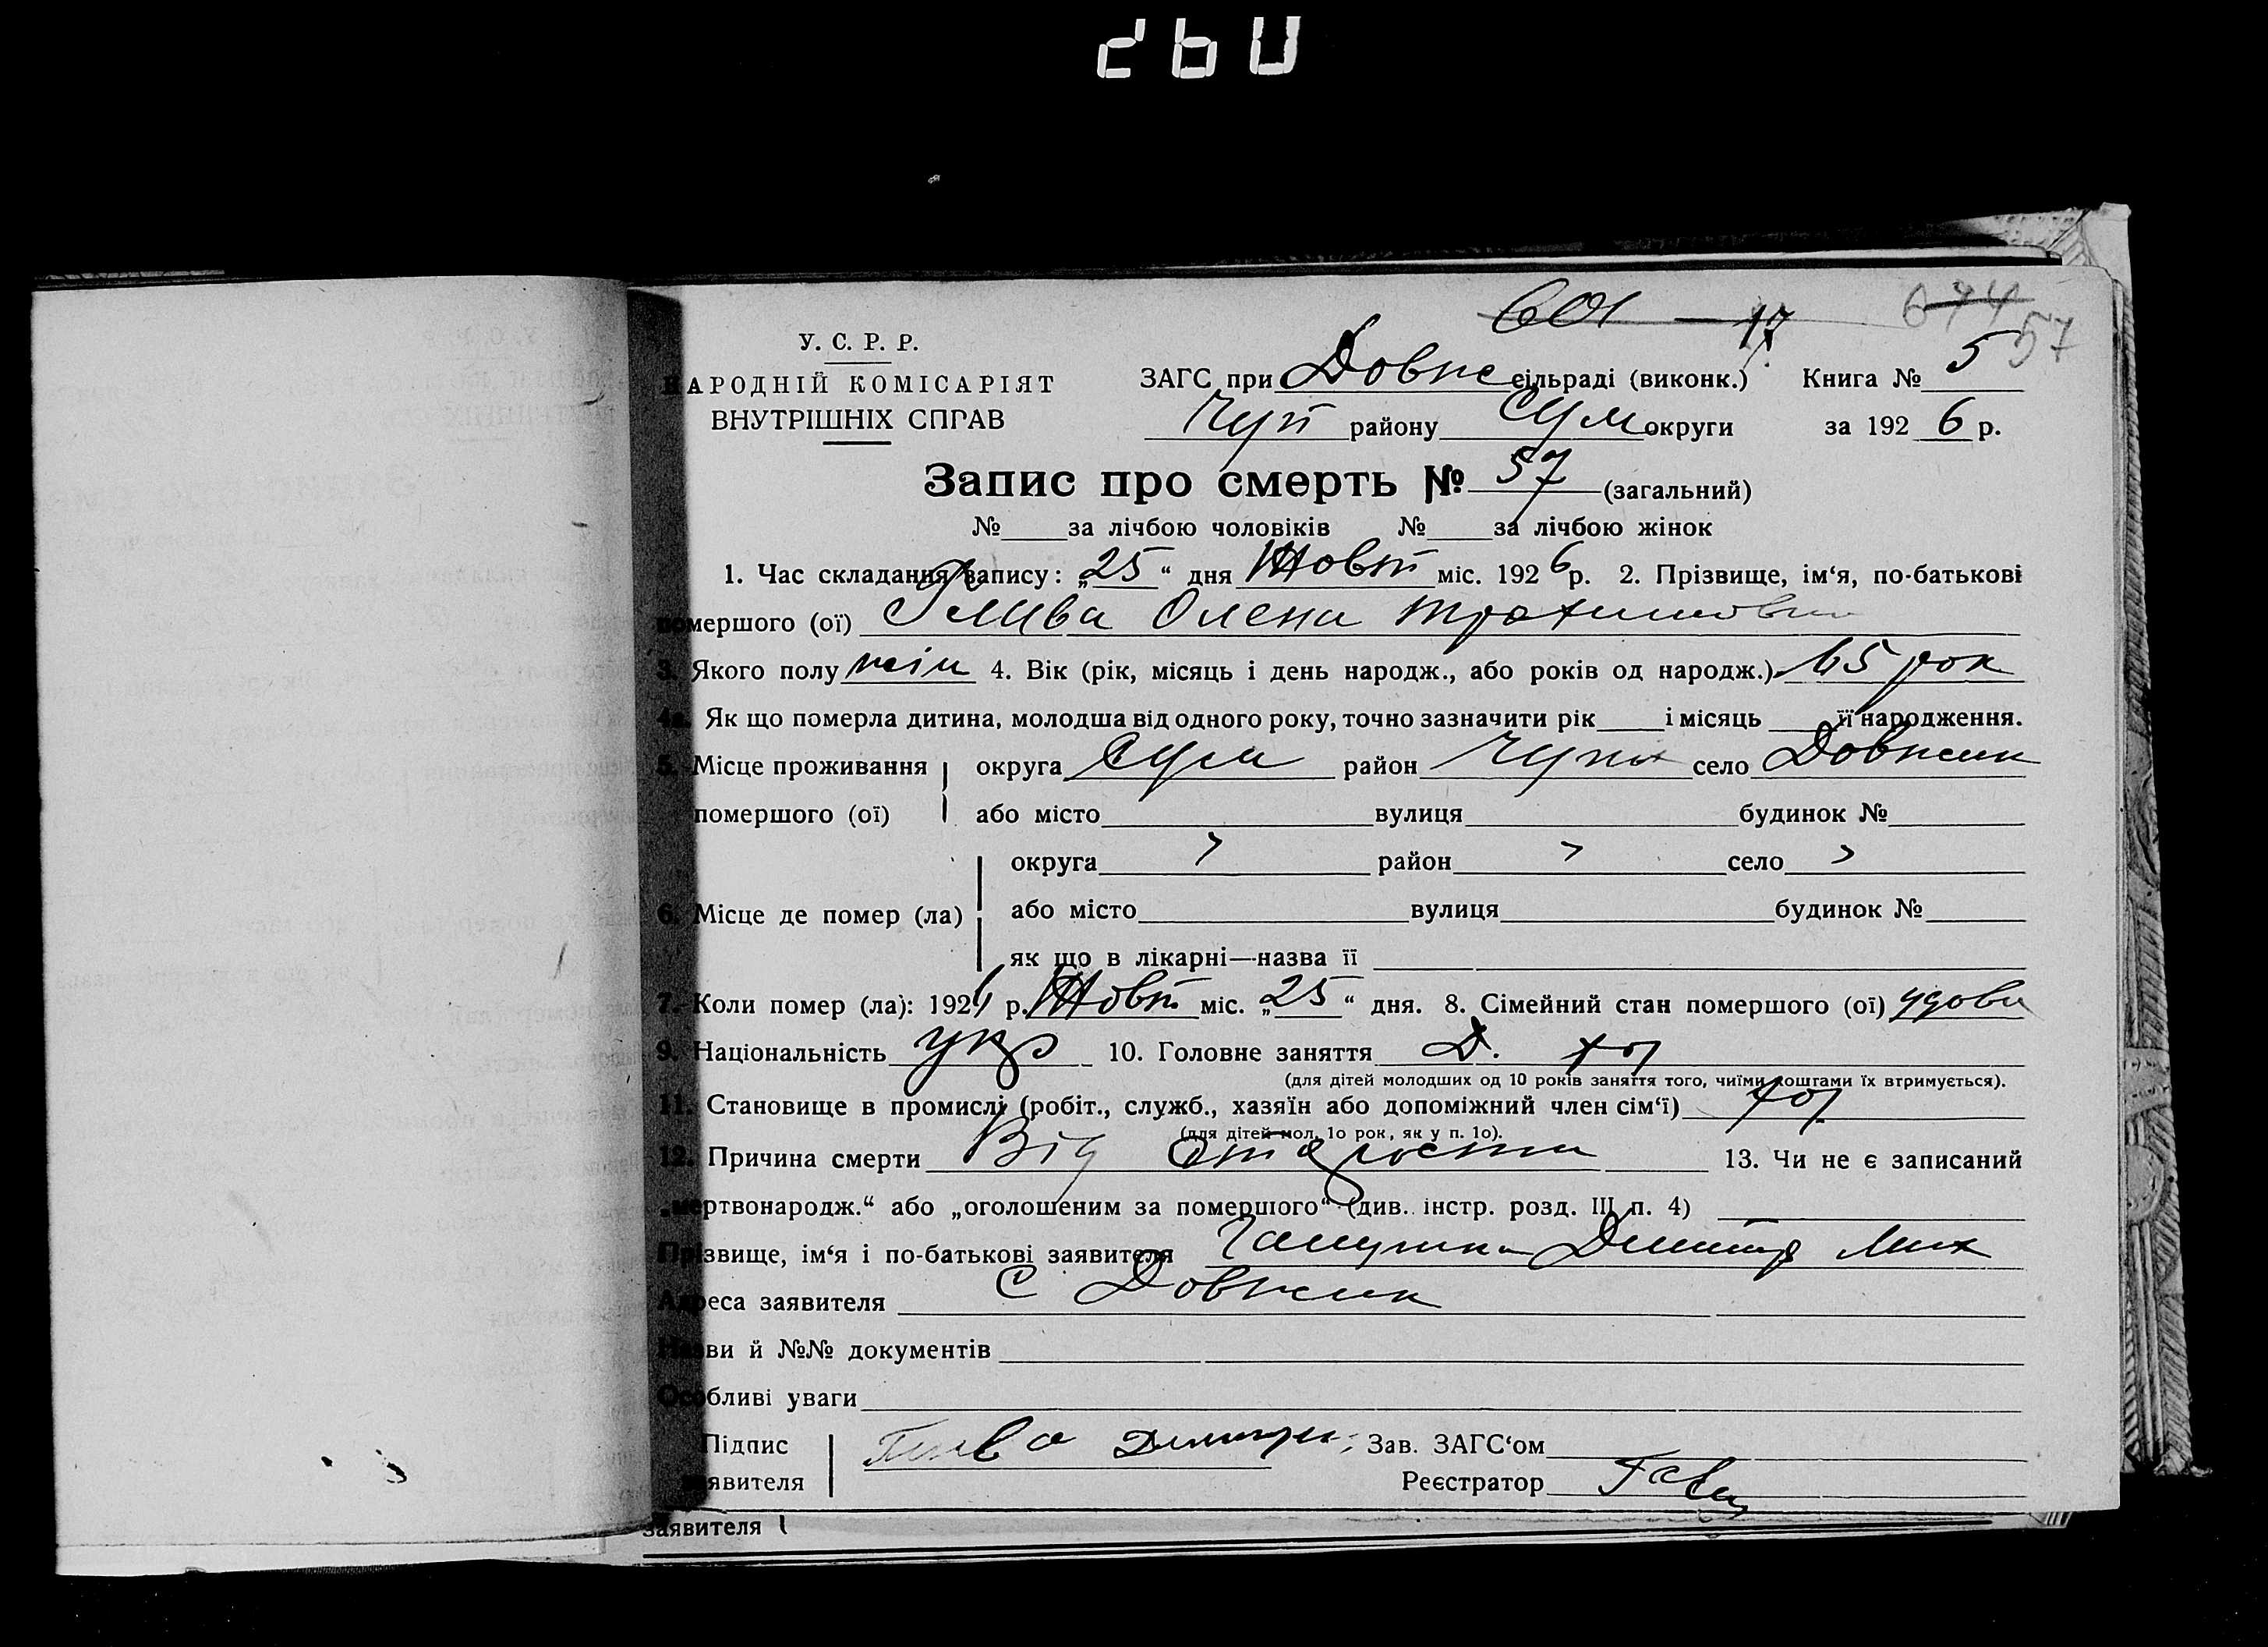 260
601 — 17 674
57
У. С. Р. Р.
НАРОДНІЙ КОМІСАРІЯТ
ВНУТРІШНІХ СПРАВ
ЗАГС при Довж сільраді (виконк.) Книга № 5
Чуп району Сум округи за 1926 р.
Запис про смерть № 57 (загальний)
№ за лічбою чоловіків № за лічбою жінок
1. Час складання запису: „25“ дня Жовт міс. 1926 р. 2. Прізвище, ім‘я, по-батькові
помершого (ої) Олена Трохимовна
3. Якого полу жін 4. Вік (рік, місяць і день народж., або років од народж.) 65 рок
4а. Як що померла дитина, молодша від одного року, точно зазначити рік і місяць її народження.
5. Місце проживання округа Сум район Чуп село Довжик
помершого (ої) або місто вулиця будинок №
округа район село
6. Місце де помер (ла) або місто вулиця будинок №
як що в лікарні—назва її
7. Коли помер (ла): 1926 р. Жовт міс. „25“ дня. 8. Сімейний стан помершого (ої) удова
9. Національність укр 10. Головне заняття Д. хоз
(для дітей молодших од 10 років заняття того, чиїми коштами їх втримується).
11. Становище в промислі (робіт., служб., хазяїн або допоміжний член сім‘ї) хоз
(для дітей мол. 1о рок, як у п. 1о).
12. Причина смерти Від старости 13. Чи не є записаний
„мертвонародж.“ або „оголошеним за помершого“ (див. інстр. розд. III п. 4)
Прізвище, ім‘я і по-батькові заявителя Дмитр Мих
Адреса заявителя С Довжик
Назви й №№ документів
Особливі уваги
Підпис Зав. ЗАГС‘ом
заявителя Реєстратор
заявителя